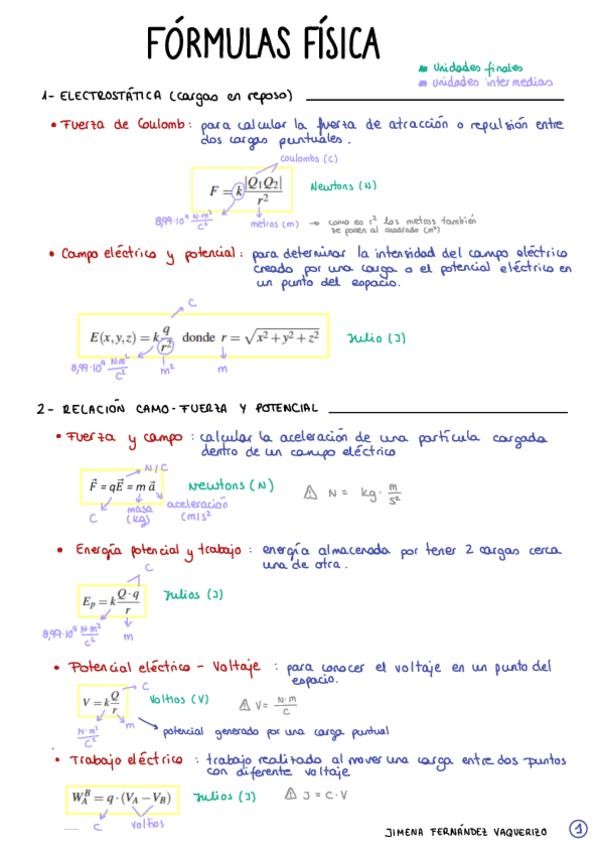 FÓRMULAS FÍSICA
Unidades finales
unidades intermedias
1- ELECTROSTÁTICA (cargas en reposo)
• Fuerza de Coulomb: para calcular la fuerza de atracción o repulsión entre
dos cargas puntuales.
coulombs (C)
F = k |Q₁Q₂| / r²
Newtons (N)
8,99·10⁹ N·m² / C²
metros (m) → como es r² los metros también
se ponen al cuadrado (m²)
• Campo eléctrico y potencial: para determinar la intensidad del campo eléctrico
creado por una carga o el potencial eléctrico en
un punto del espacio.
C
E(x,y,z) = k q / r² donde r = √x² + y² + z²
Julio (J)
8,99·10⁹ Nm² / C²
m²
m
2- RELACIÓN CAMO-FUERZA Y POTENCIAL
• Fuerza y campo: calcular la aceleración de una partícula cargada
dentro de un campo eléctrico
N/C
F⃗ = qE⃗ = m a⃗
Newtons (N)
⚠ N = kg · m / s²
C
masa
(kg)
aceleración
(m/s²
• Energía potencial y trabajo: energía almacenada por tener 2 cargas cerca
una de otra.
C
Eₚ = k Q·q / r
Julios (J)
8,99·10⁹ N·m² / C²
m
• Potencial eléctrico - Voltaje : para conocer el voltaje en un punto del
espacio.
C
V = k Q / r
Voltios (V)
⚠ V = N·m / C
m
N·m² / C²
potencial generado por una carga puntual
• Trabajo eléctrico : trabajo realizado al mover una carga entre dos puntos
con diferente voltaje
W_A^B = q · (V_A − V_B)
Julios (J)
⚠ J = C·V
C
voltios
JIMENA FERNÁNDEZ VAQUERIZO
1